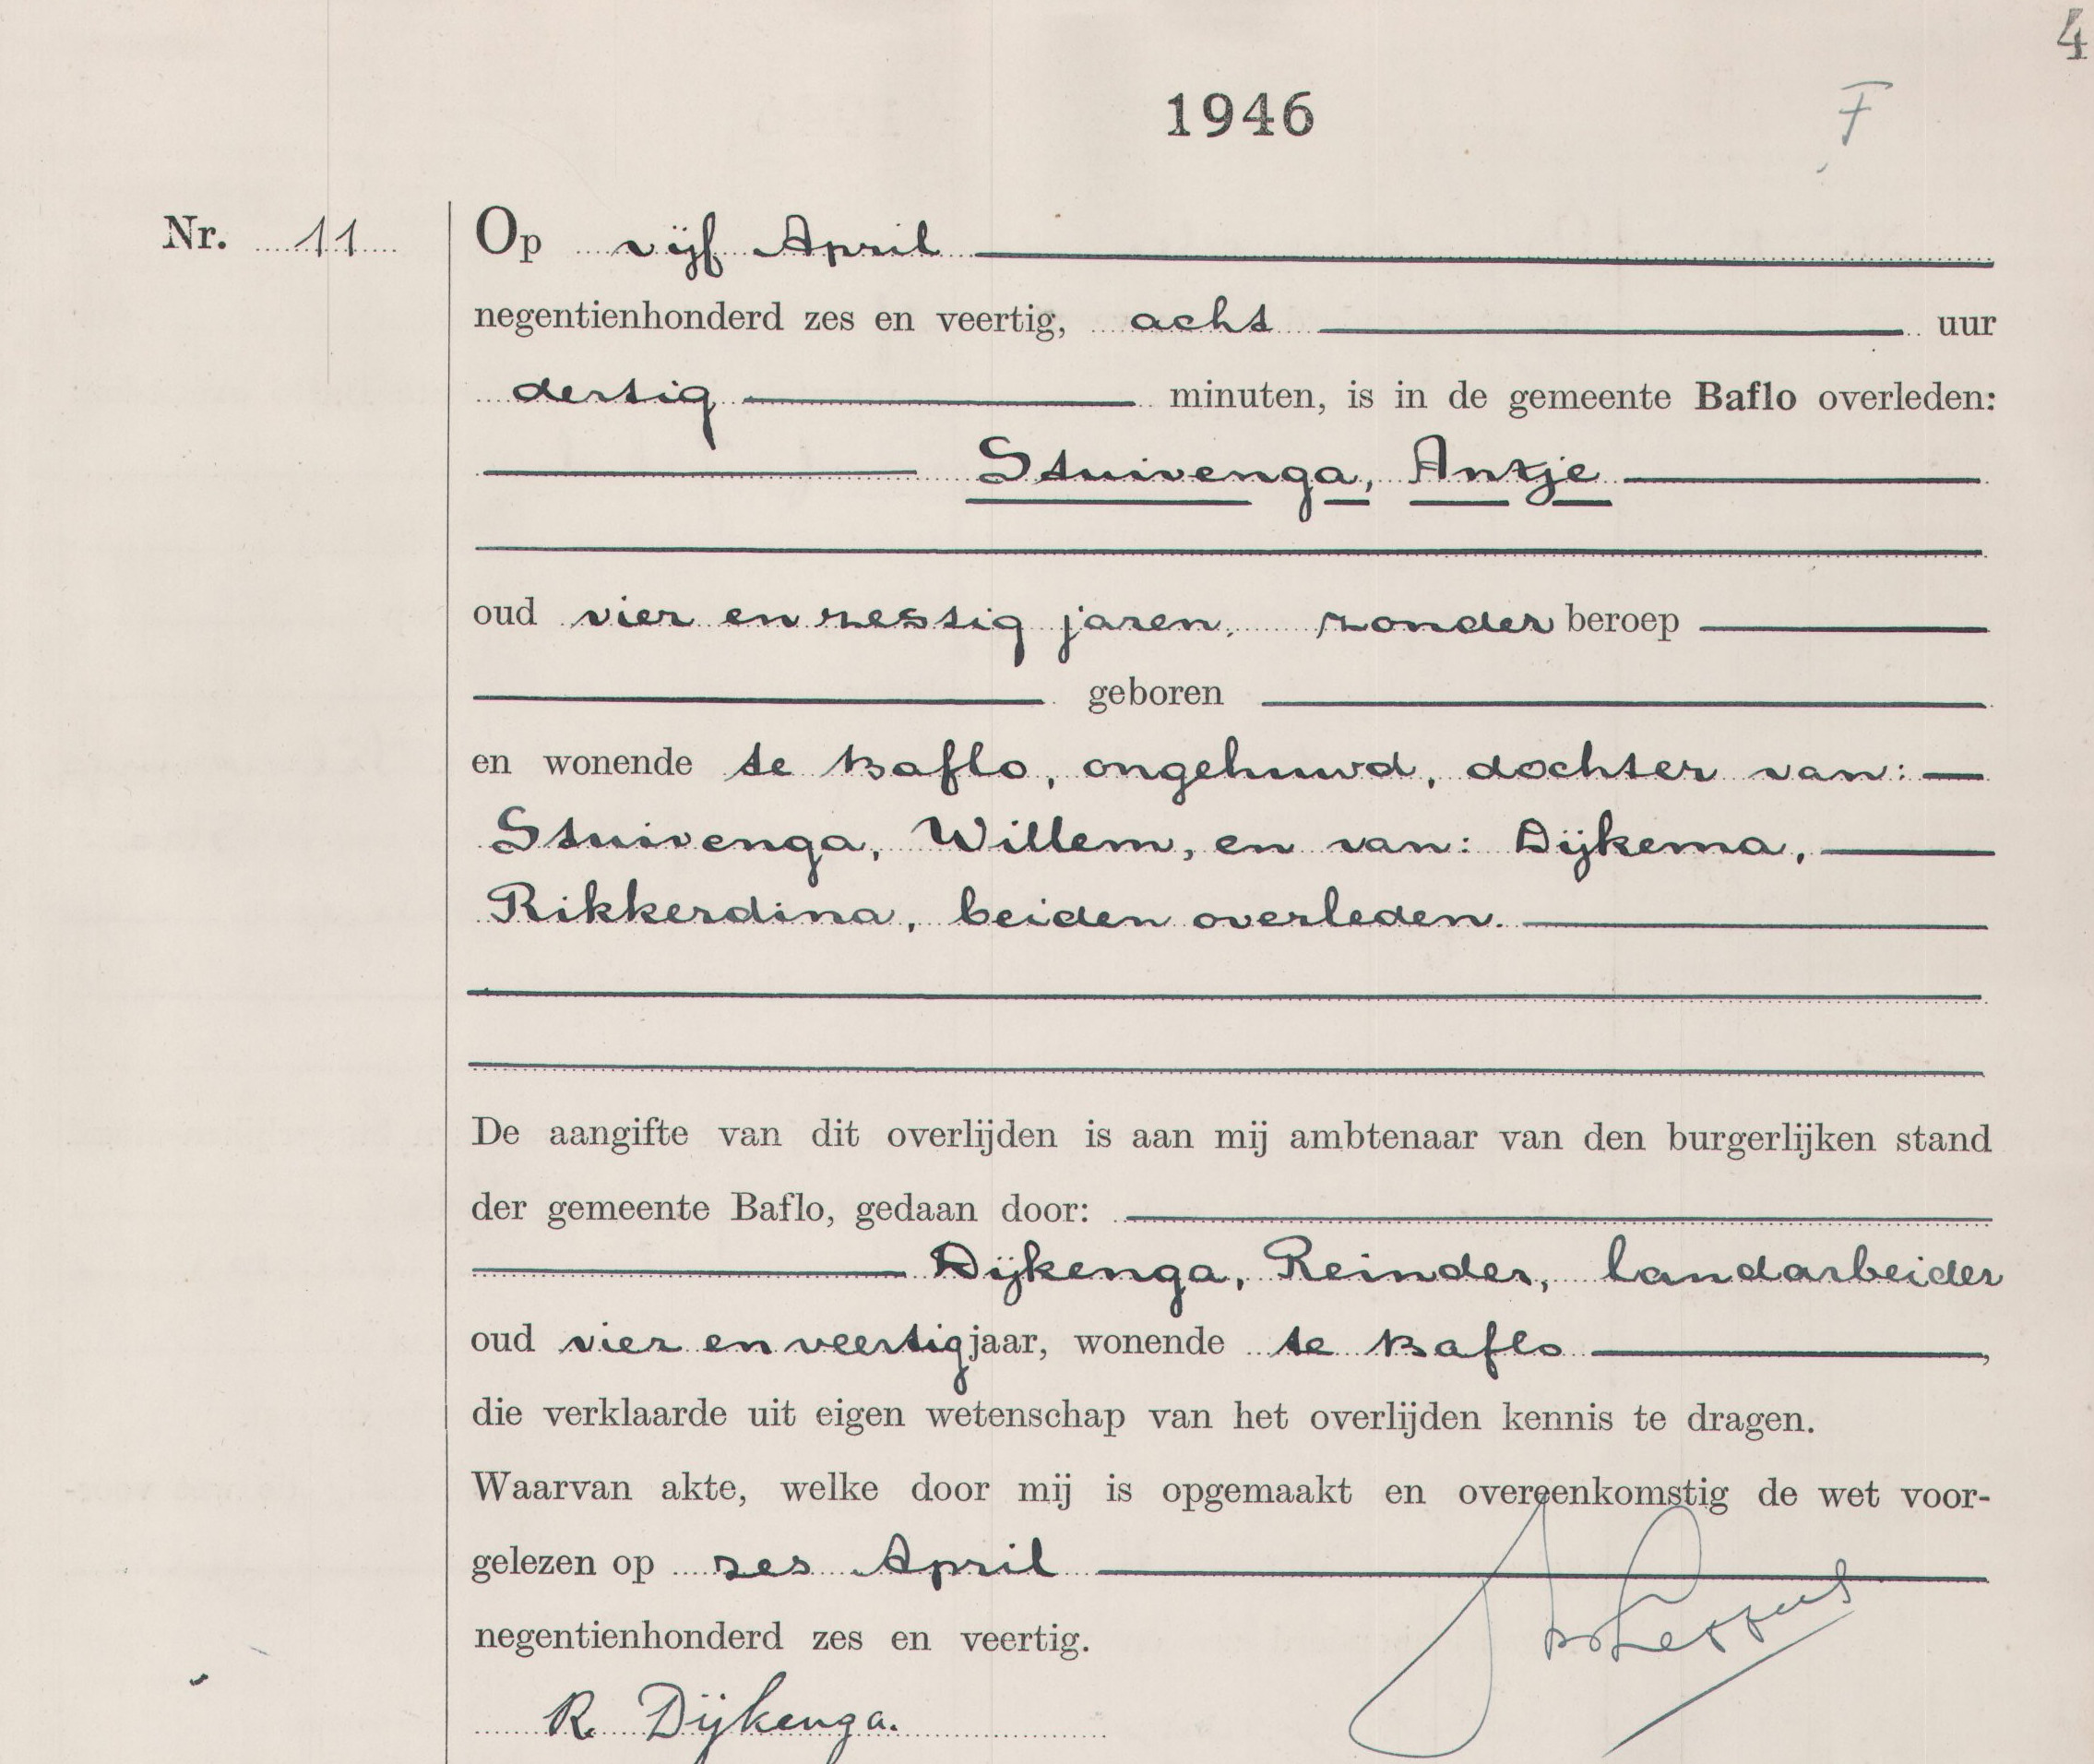 4
1946
F
Nr. 11
Op vijf April
negentienhonderd zes en veertig, acht uur
dertig minuten, is in de gemeente Baflo overleden:
Stuivenga, Antje
oud vier en zestig jaren, zonder beroep
geboren
en wonende te Baflo, ongehuwd, dochter van:
Stuivenga, Willem, en van: Dijkema,
Rikkerdina, beiden overleden.
De aangifte van dit overlijden is aan mij ambtenaar van den burgerlijken stand
der gemeente Baflo, gedaan door:
Dijkenga, Reinder, landarbeider
oud vier en veertig jaar, wonende te Baflo,
die verklaarde uit eigen wetenschap van het overlijden kennis te dragen.
Waarvan akte, welke door mij is opgemaakt en overeenkomstig de wet voor-
gelezen op zes April
negentienhonderd zes en veertig.
R. Dijkenga.